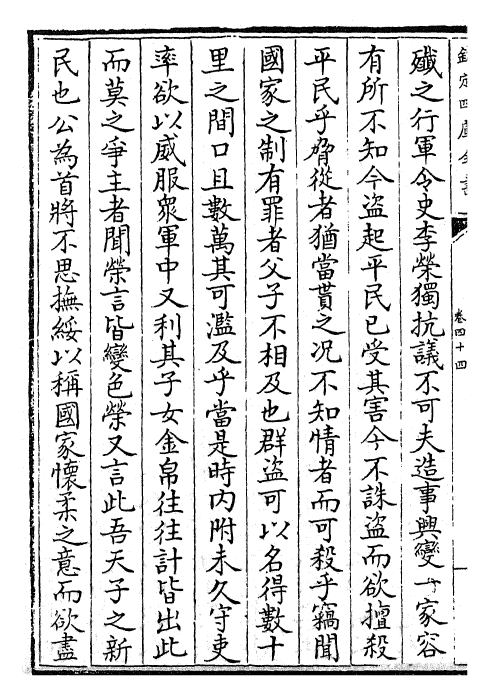 欽定四庫全書
卷四十四
殱之行軍令史李榮獨抗議不可夫造事興變一家容
有所不知今盜起平民已受其害今不誅盜而欲擅殺
平民乎脅從者猶當貰之况不知情者而可殺乎竊聞
國家之制有罪者父子不相及也群盜可以名得數十
里之間口且數萬其可濫及乎當是時内附未久守吏
率欲以威服衆軍中又利其子女金帛往往計皆出此
而莫之爭主者聞榮言皆變色榮又言此吾天子之新
民也公為首將不思撫綏以稱國家懷柔之意而欲盡